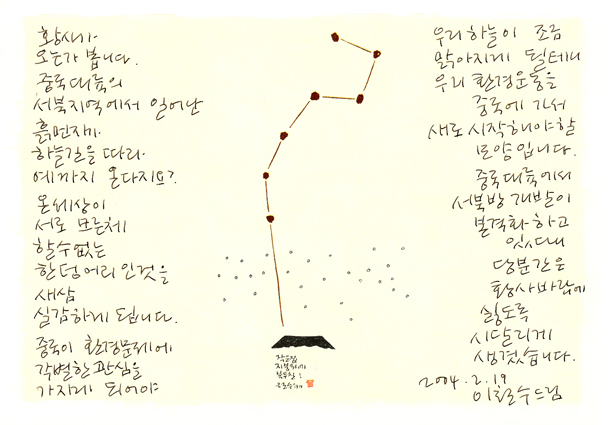 황사가
오는가 봅니다.
중국대륙의
서북지역에서 일어난
흙먼지가
하늘길을 따라
예까지 온다지요?
온세상이
서로 모른체
할수없는
한덩어리인것을
새삼
실감하게 됩니다.
중국이 환경문제에
각별한 관심을
가지게 되어야
우리하늘이 조금
맑아지게 될테니
우리 환경운동을
중국에 가서
새로 시작해야할
모양입니다.
중국대륙에서
서북방 개발이
본격화하고
있다니
당분간은
황사바람에
싫도록
시달리게
생겼습니다.
2004.2.19
이철수드림
작은집
지붕위에
북두칠